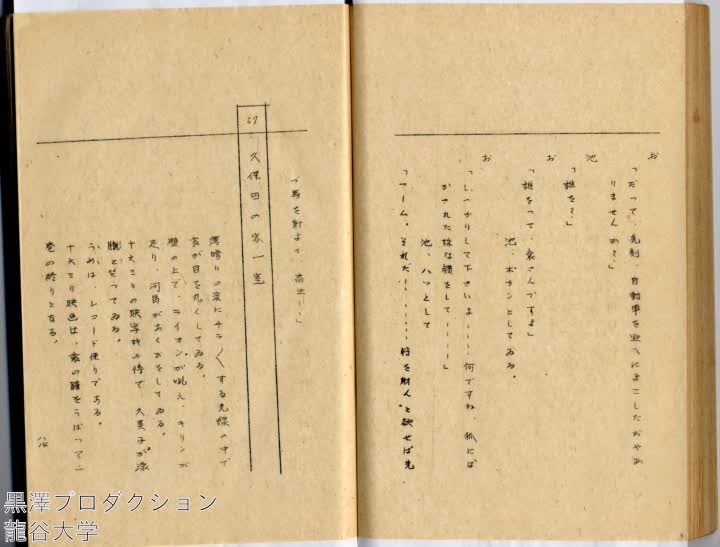 お
「だって、先刻、自動車を迎へによこしたぢやあ
りませんか？」
池
「誰を？」
お
「誰をつて、袁さんですよ」
池、ポカンとしてゐる。
お
「しつかりして下さいよ……何ですね、狐にば
かされた様な顔をして……」
池、ハッとして
「フーム。それだ！……将を射んと欲せば先
づ馬を射よ、畜生！」
67
久保田の家一室
薄暗りの裏にチラ〱する光線の中で
袁が目を丸くしてゐる。
壁の上で、ライオンが吼え、キリンが
走り、河馬があくびをしてゐる。
十六ミリの映写機の傍で、久美子が
と笑つてゐる。
レコード便りである。
十六ミリ映画は、袁の をうばつて一
巻の終りとなる。
黒澤プロダクション
龍谷大学